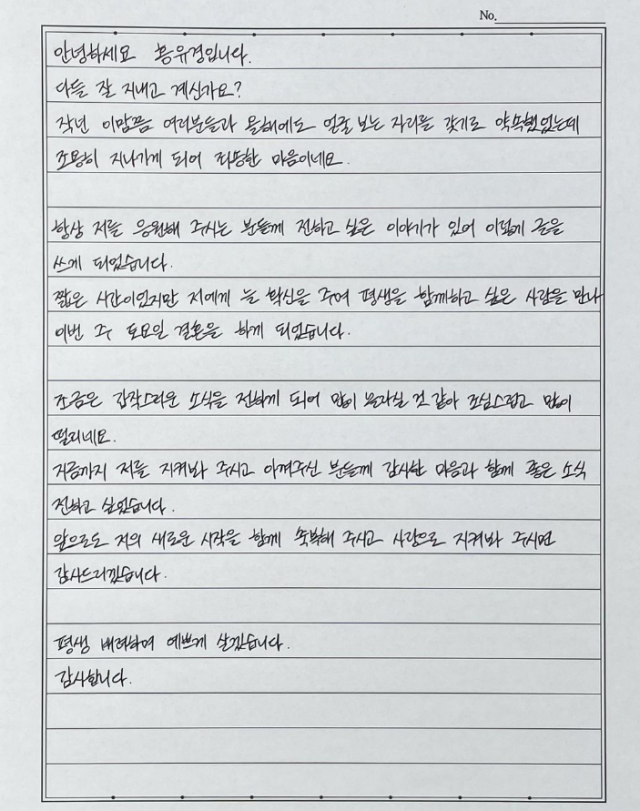 No.
안녕하세요 홍유경입니다.
다들 잘 지내고 계신가요?
작년 이맘쯤 여러분들과 올해에도 얼굴 보는 자리를 갖기로 약속했었는데
조용히 지나가게 되어 죄송한 마음이네요.
항상 저를 응원해 주시는 분들께 전하고 싶은 이야기가 있어 이렇게 글을
쓰게 되었습니다.
짧은 시간이었지만 저에게 늘 확신을 주며 평생을 함께하고 싶은 사람을 만나
이번 주 토요일 결혼을 하게 되었습니다.
조금은 갑작스러운 소식을 전하게 되어 많이 놀라실 것 같아 조심스럽고 많이
떨리네요.
지금까지 저를 지켜봐 주시고 아껴주신 분들께 감사한 마음과 함께 좋은 소식
전하고 싶었습니다.
앞으로도 저의 새로운 시작을 함께 축복해 주시고 사랑으로 지켜봐 주시면
감사드리겠습니다.
평생 배려하며 예쁘게 살겠습니다.
감사합니다.